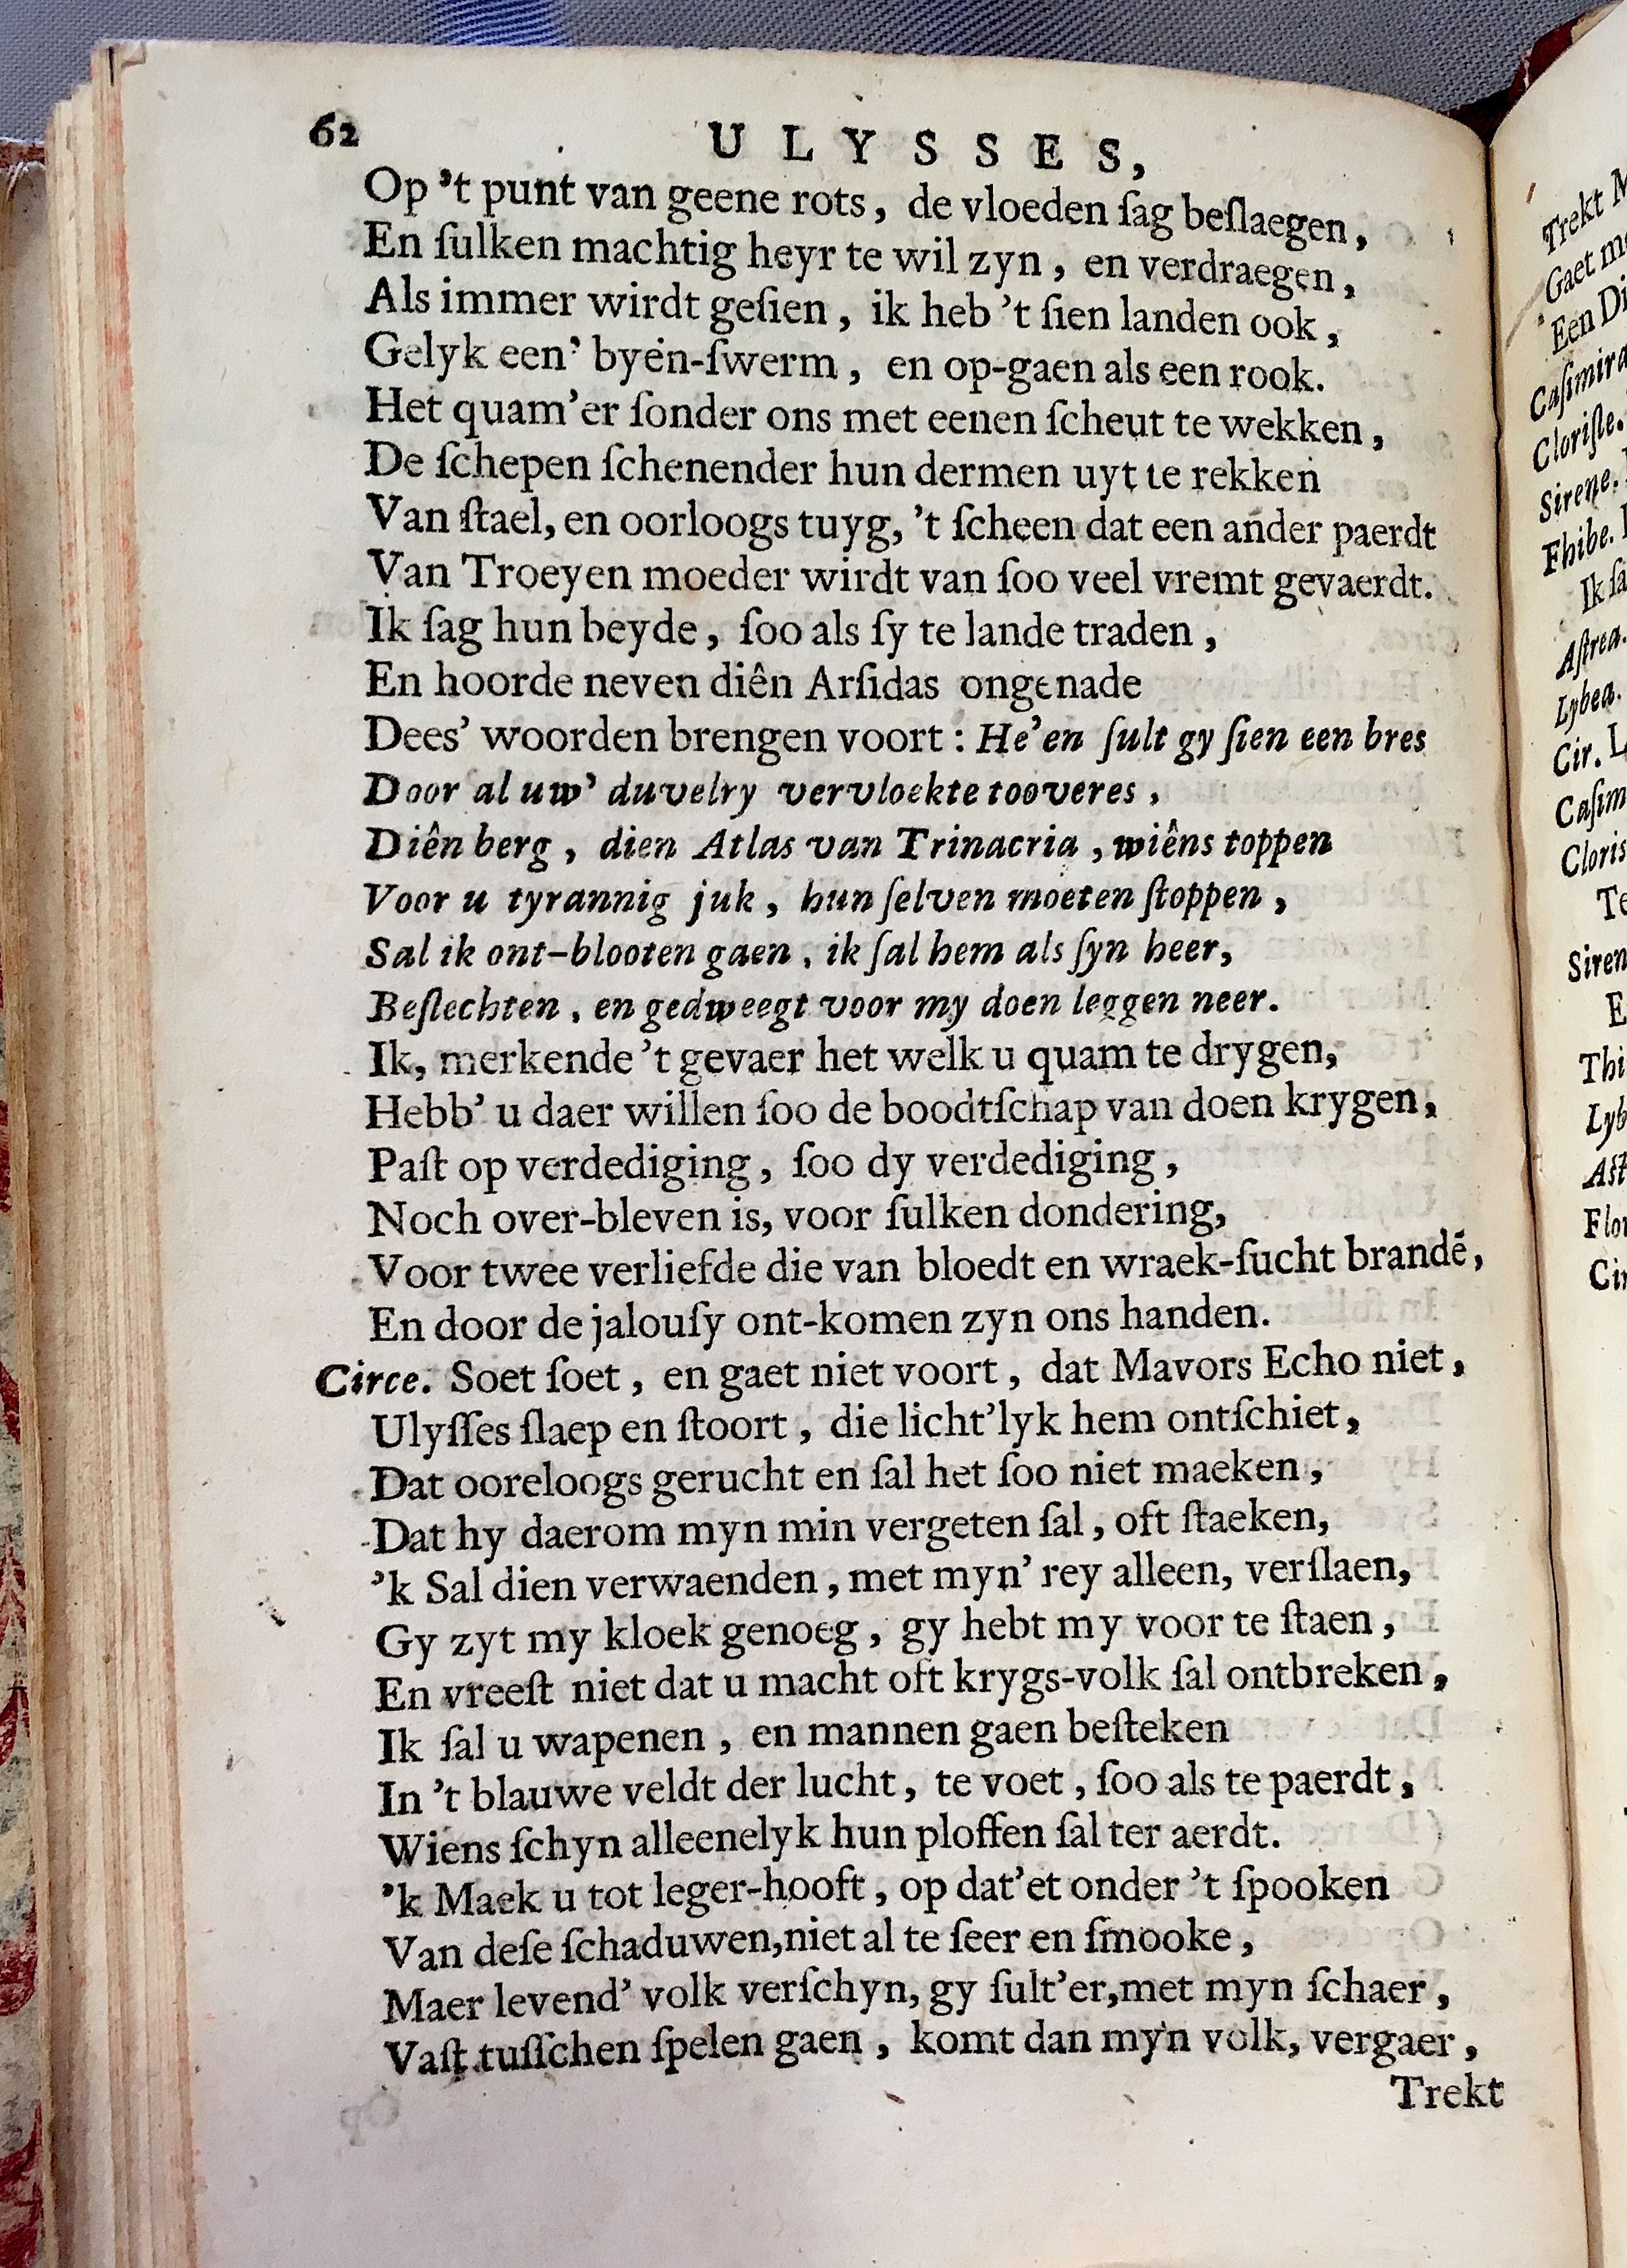 62 ULYSSES,
Op 't punt van geene rots, de vloeden ſag beſlaegen,
En ſulken machtig heyr te wil zyn, en verdraegen,
Als immer wirdt geſien, ik heb 't ſien landen ook,
Gelyk een' byen-ſwerm, en op-gaen als een rook.
Het quam'er ſonder ons met eenen ſcheut te wekken,
De ſchepen ſchenender hun dermen uyt te rekken
Van ſtael, en oorloogs tuyg, 't ſcheen dat een ander paerdt
Van Troeyen moeder wirdt van ſoo veel vremt gevaerdt.
Ik ſag hun beyde, ſoo als ſy te lande traden,
En hoorde neven diên Arſidas ongenade
Dees' woorden brengen voort: He'en ſult gy ſien een bres
Door al uw' duvelry vervloekte tooveres,
Diên berg, dien Atlas van Trinacria, wiêns toppen
Voor u tyrannig juk, hun ſelven moeten ſtoppen,
Sal ik ont-blooten gaen, ik ſal hem als ſyn heer,
Beſlechten, en gedweegt voor my doen leggen neer.
Ik, merkende 't gevaer het welk u quam te drygen,
Hebb' u daer willen ſoo de boodtſchap van doen krygen,
Paſt op verdediging, ſoo dy verdediging,
Noch over-bleven is, voor ſulken dondering,
Voor twee verliefde die van bloedt en wraek-ſucht brandē,
En door de jalouſy ont-komen zyn ons handen.
Circe. Soet ſoet, en gaet niet voort, dat Mavors Echo niet,
Ulyſſes ſlaep en ſtoort, die licht'lyk hem ontſchiet,
Dat ooreloogs gerucht en ſal het ſoo niet maeken,
Dat hy daerom myn min vergeten ſal, oft ſtaeken,
'k Sal dien verwaenden, met myn' rey alleen, verſlaen,
Gy zyt my kloek genoeg, gy hebt my voor te ſtaen,
En vreeſt niet dat u macht oft krygs-volk ſal ontbreken,
Ik ſal u wapenen, en mannen gaen beſteken
In 't blauwe veldt der lucht, te voet, ſoo als te paerdt,
Wiens ſchyn alleenelyk hun ploffen ſal ter aerdt.
'k Maek u tot leger-hooft, op dat'et onder 't ſpooken
Van deſe ſchaduwen, niet al te ſeer en ſmooke,
Maer levend' volk verſchyn, gy ſult'er, met myn ſchaer,
Vaſt tuſſchen ſpelen gaen, komt dan myn volk, vergaer,
Trekt
Trekt
Gaet
Een
Cloriſte.
Sirene.
Fhibe.
Ik
Aſtrea.
Lybea.
Cir.